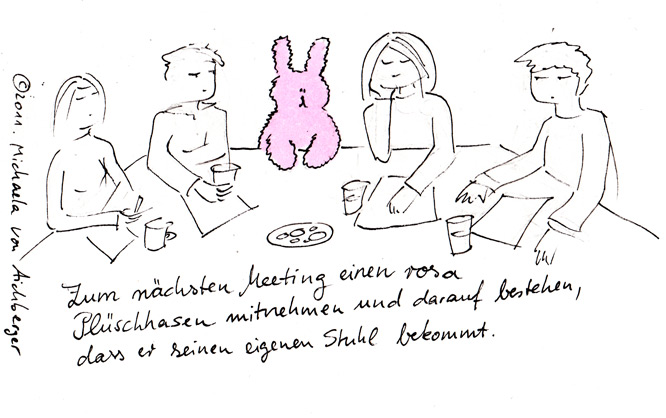 ©2011. Michaela von Aichberger
Zum nächsten Meeting einen rosa
Plüschhasen mitnehmen und darauf bestehen,
dass er seinen eigenen Stuhl bekommt.